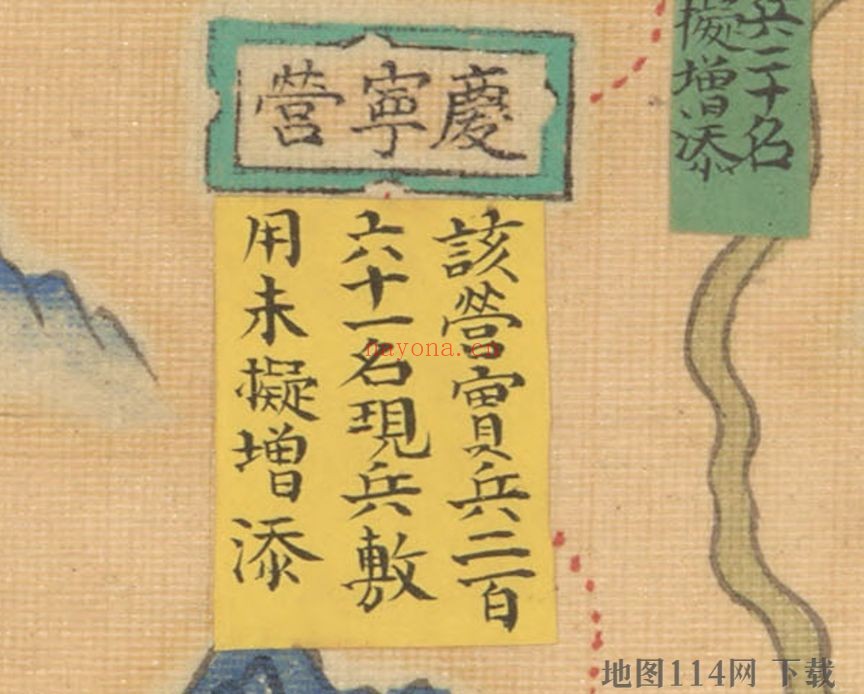 慶寧營
該營實兵二百
六十一名現兵敷
用未擬增添
兵二十名
擬增添
nayona.cn
地图114网 下载